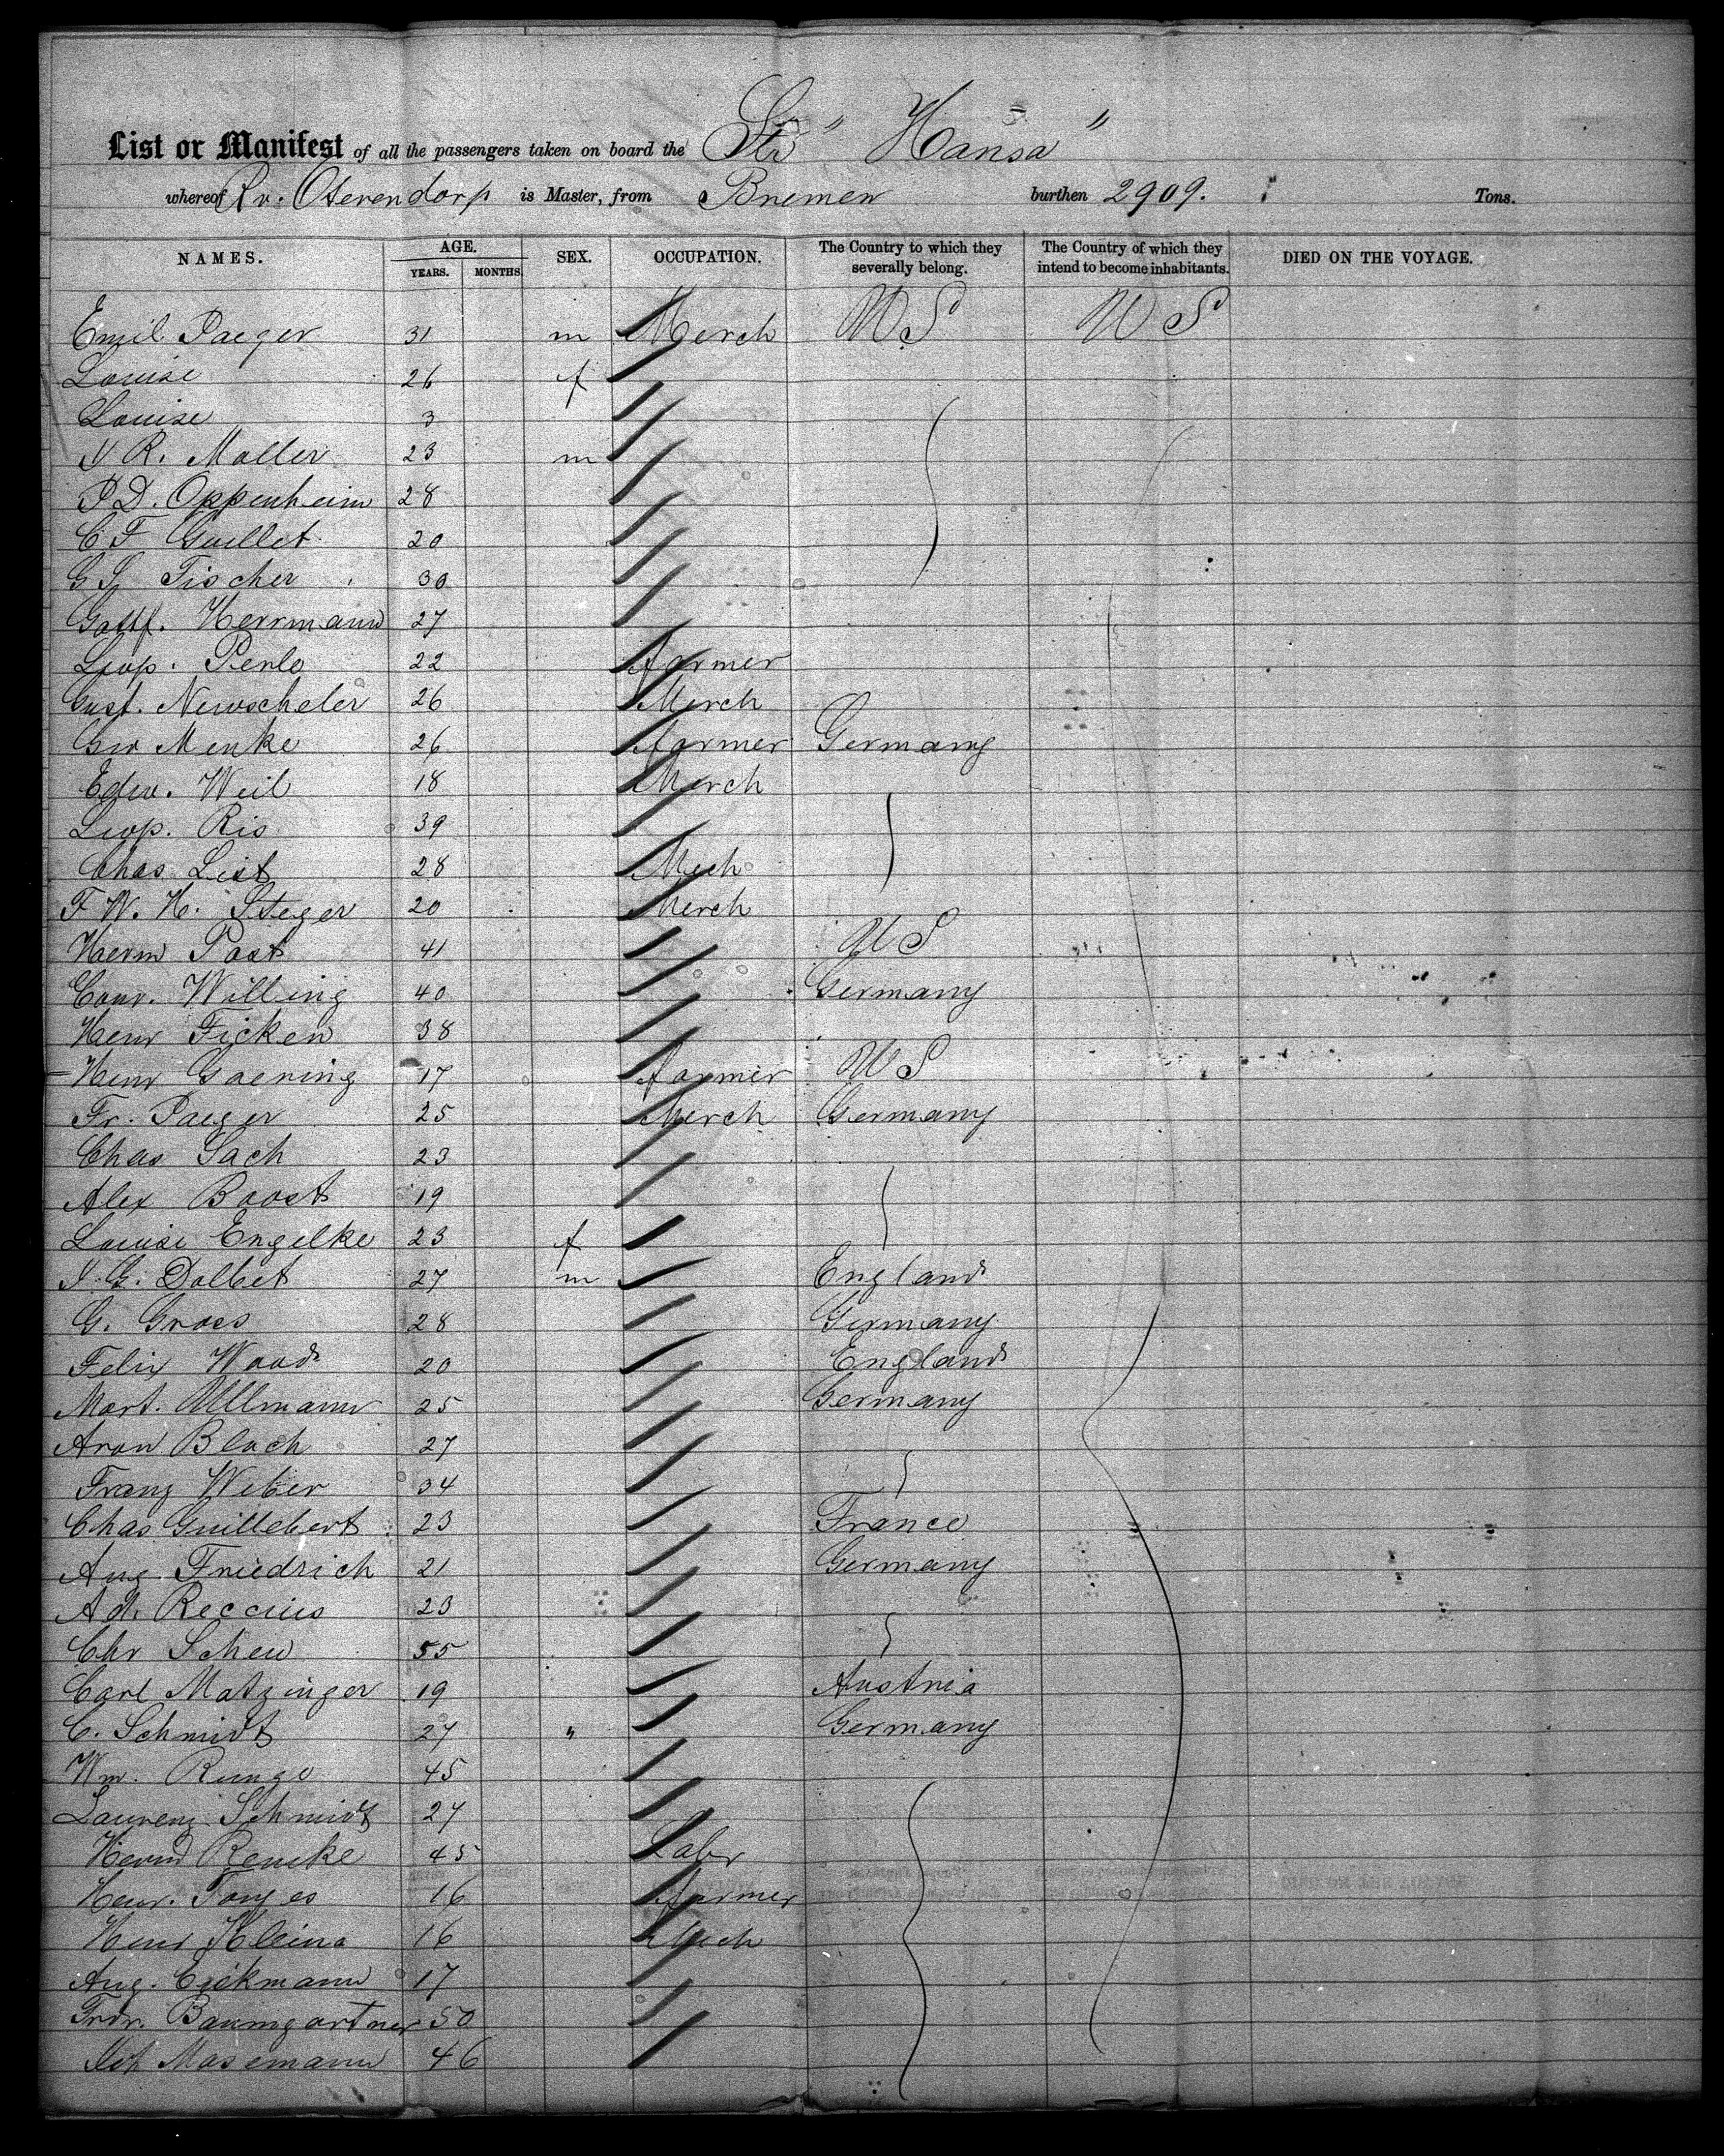 List or Manifest of all the passengers taken on board the Str " Hansa "
whereof K v. Oterendorp is Master, from Bremen burthen 2909. Tons.
NAMES. AGE. SEX. OCCUPATION. The Country to which they severally belong. The Country of which they intend to become inhabitants. DIED ON THE VOYAGE.
YEARS. MONTHS.
Emil Jaeger 31 m Merch U S U S
Louise 26 f
Louise 3
R. Moller 23 m
D. Oppenheim 28
C F Guillet 20
G L Fischer 30
Gottf. Herrmann 27
Leop. Perle 22 farmer
Gust. Newscheler 26 Merch
Geo Menke 26 farmer Germany
Edw. Weil 18 Merch
Leop. Ris 39
Chas List 28 Mech
F W. H. Steger 20 Merch
Herm Post 41 U S
Conr. Willing 40 Germany
Henr Ficken 38
Henr Goening 17 farmer U S
Fr. Jaeger 25 Merch Germany
Chas Sach 23
Alex Boost 19
Louise Engelke 23 f
J. G. Dolbet 27 m England
G. Gross 28 Germany
Felix Wood 20 England
Mort. Ullmann 25 Germany
Aron Bloch 27
Franz Weber 34
Chas Guillebert 23 France
Aug. Friedrich 21 Germany
Ad. Reccius 23
Chr Scheu 55
Carl Matzinger 19 Austria
C. Schmidt 27 " Germany
Wm. Runge 45
Laurenz Schmidt 27
Hermd Remke 45 Labr
Henr. Tonjes 16 farmer
Henr Kleina 16 Mech
Aug. Eickmann 17
Frdr. Baumgartner 50
Joh Masemann 46